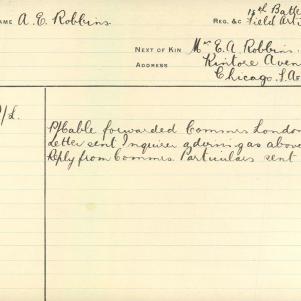 NAME A. E. Robbins.
REG. &C 16th Batt
Field Art
NEXT OF KIN Mrs E. A. Robbins.
ADDRESS Kintore Aven
Chicago.
D/L.
Cable forwarded Commrs London
Letter sent Inquirer advising as above
Reply from Commrs Particulars sent